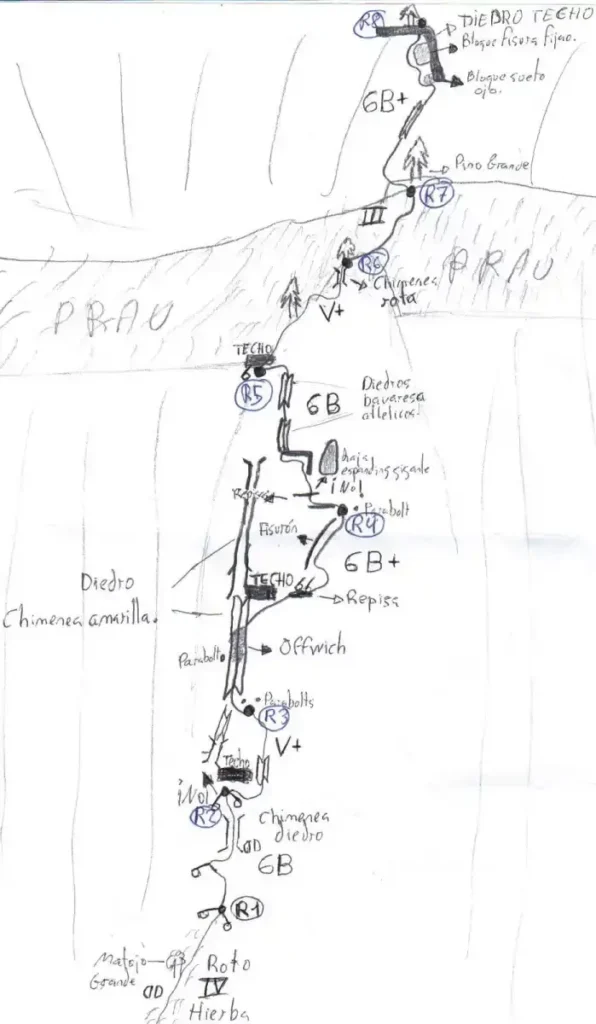 R8
DIEDRO TECHO
Bloque fisura fijao.
Bloque suelto
ojo.
6B+
Pino Grande
R7
III
R6
PRAU
PRAU
Chimenea
rota
V+
TECHO
R5
6B
Diedros
bavaresa
atleticos.
laja
expanding gigante
¡No!
Repisa
Parabolt
R4
Fisurón
6B+
Diedro
Chimenea amarilla.
TECHO
Repisa
Offwich
Parabolt
Parabolts
R3
V+
Techo
¡No!
R2
Chimenea
diedro
6B
R1
Matojo
Grande
Roto
IV
Hierba